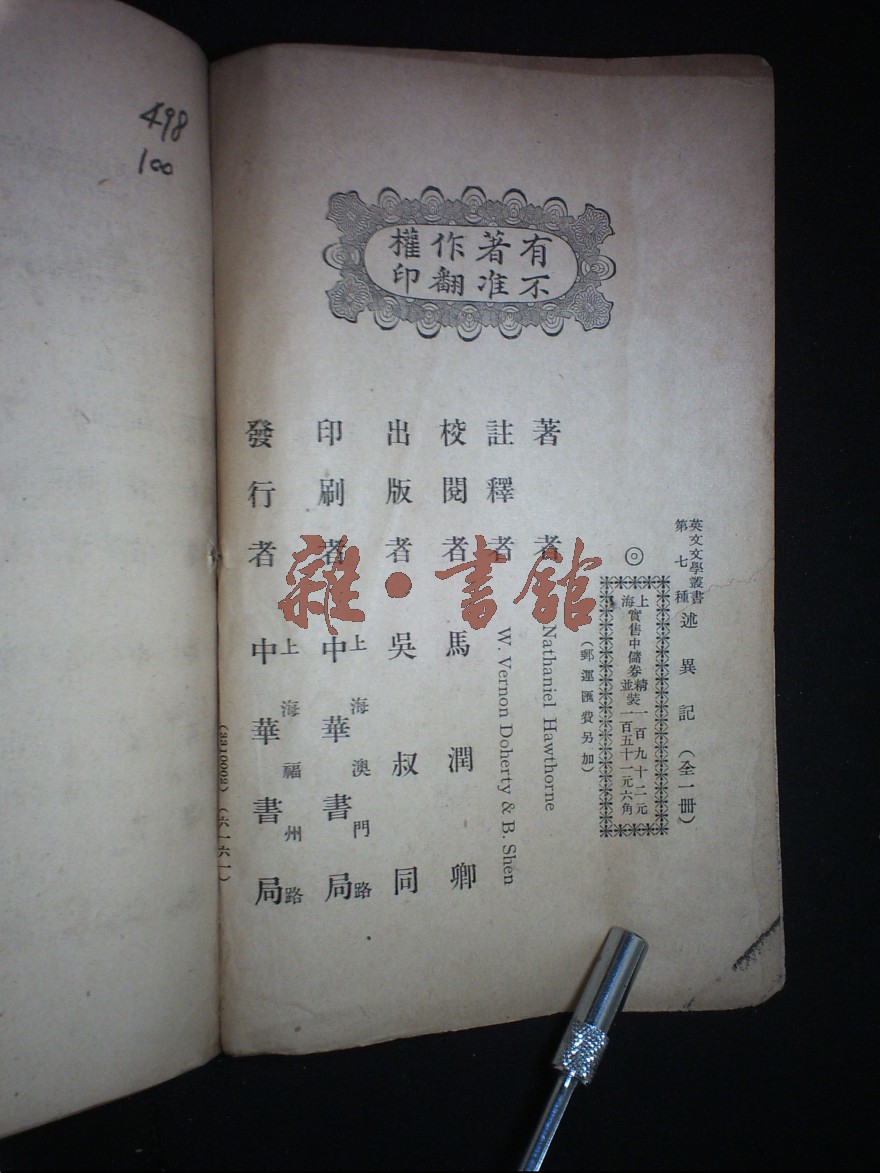 498
100
有著作權
不准翻印
英文文學叢書
第七種
述異記(全一冊)
上海實售中儲券精裝一百九十二元
並一百五十一元六角
(郵運匯費另加)
著者 Nathaniel Hawthorne
註釋者 W. Vernon Doherty & B. Shen
校閱者 馬潤卿
出版者 吳叔同
印刷者 上海澳門路
中華書局
發行者 上海福州路
中華書局
(3310002)(六一六一)
雜·書館